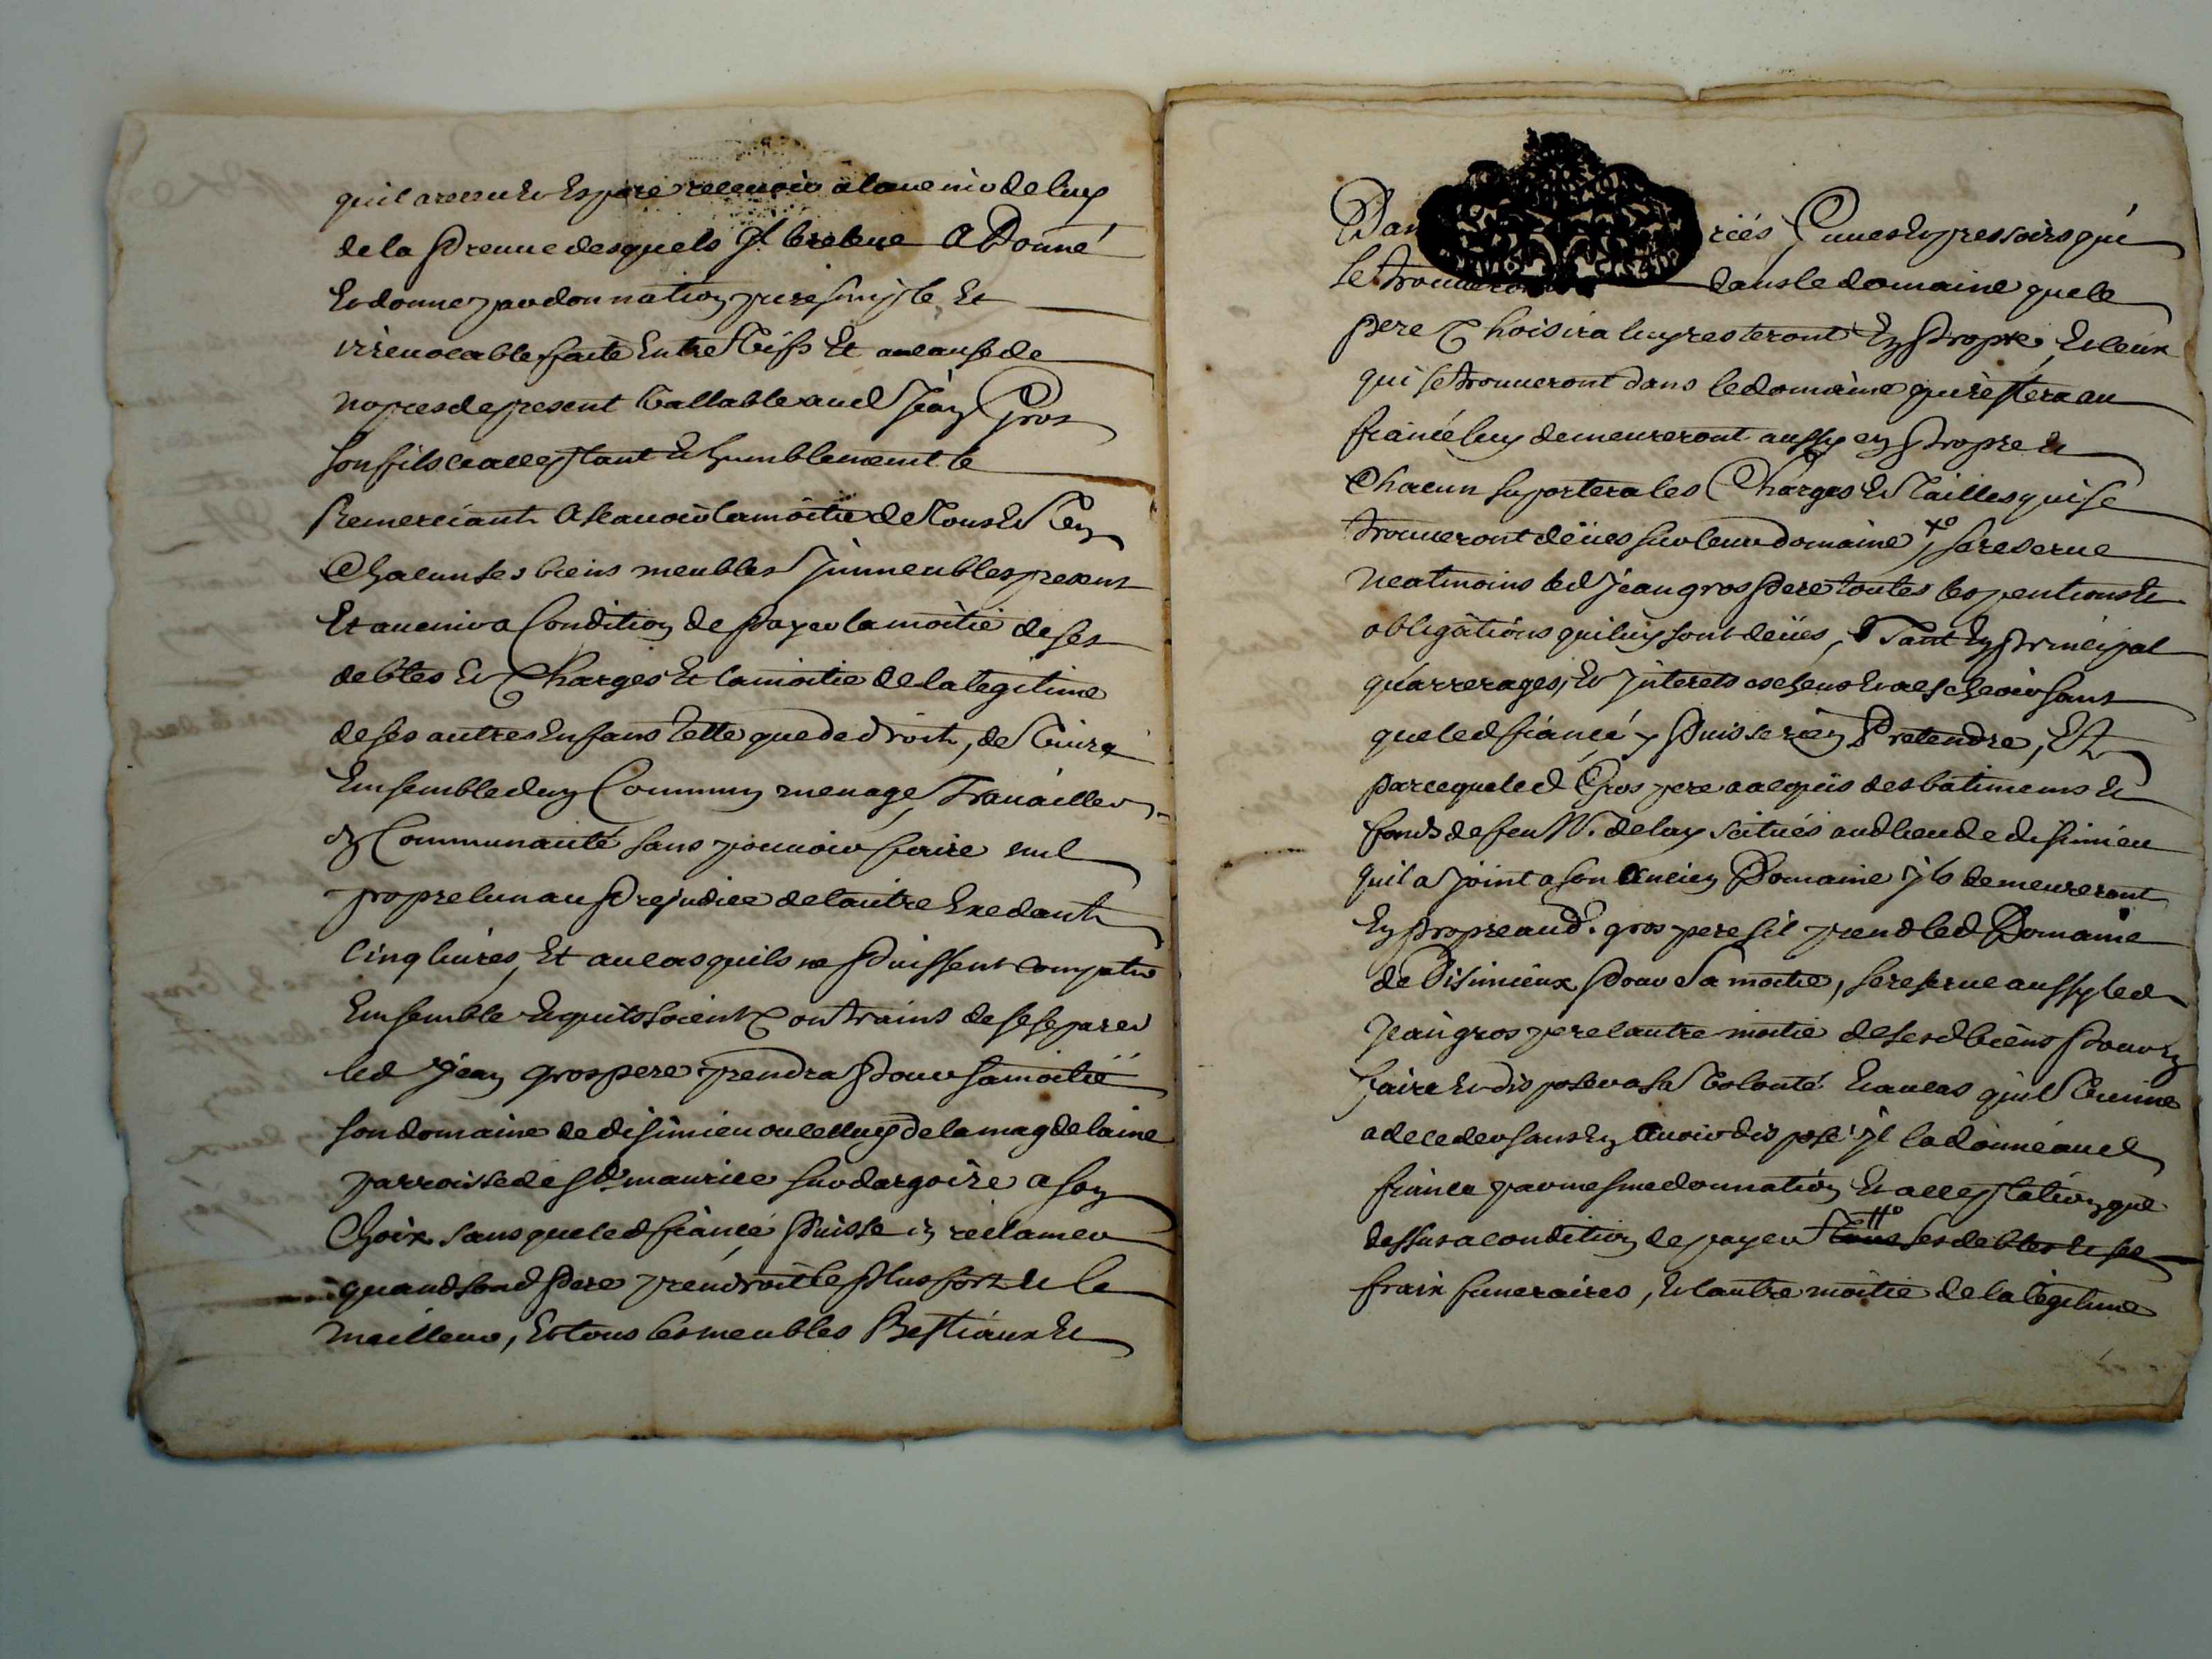 quil a receu et espere recevoir a lavenir de luy
de la preuve desquels Jl le releve A Donné
Et donne par donnation pure simple Et
irrevocable faite Entre vifs Et au cause de
nopces de present vallable aud Jean Gros
son fils ce acceptant et humblement le
Remerciant A scavoir la moitie de tous et Un
Chacun ses biens meubles Jmmeubles presens
Et avenir a Condition de payer la moitie de ses
debtes Et Charges Et la moitie de la legitime
de ses autres Enfans telle que de droit, de vivre
Ensemble dun Commun menage, travailler
En Communauté sans pouvoir faire nul
propre lun au prejudice de lautre Exedant
Cinq livres, Et au cas quils ne puissent compatir
Ensemble Et quils soient Contrains de se separer
led Jean gros pere prendra pour sa moitié
son domaine de disimieu ou celluy de la magdelaine
parroisse de St maurice sur dargoire a son
Choix sans que led fiancé puisse en reclamer
quand sond pere prendroit le plus fort et le
meilleur, Et tous les meubles Bestiaux Et
Dan riés Cuves Et pressoirs qui
se trouveront dans le domaine que le
pere Choisira luy resteront En propre, Et ceux
qui se trouveront dans le domaine qui restera au
fiancé luy demeureront aussy en propre et
Chacun suportera les Charges Et tailles qui se
trouveront deües sur leur domaine, se reserve
neatmoins led Jean gros pere toutes les pentions Et
obligations qui luy sont deües, Tant En principal
quarrerages, Et Jnterets escheus Et a escheoir sans
que led fiancé y puisse rien Pretendre, Et
parce que led Gros pere a acquis des batimens Et
fonds de feu Mr. delay scitués aud lieu de disimieu
quil a joint a son Ancien Domaine jls demeureront
En propre aud. gros pere sil prend led Domaine
de Disimieux pour sa moitie, se reserve aussy led
Jean gros pere lautre moitie de sesd biens pour En
faire Et disposer a sa volonté Et au cas quil vienne
a deceder sans En Avoir disposé Jl la donne aud
fiancé par mesme donnation Et acceptation que
dessus a condition de payer tous ses debtes Et ses
fraix funeraires, Et lautre moitie de la legitime